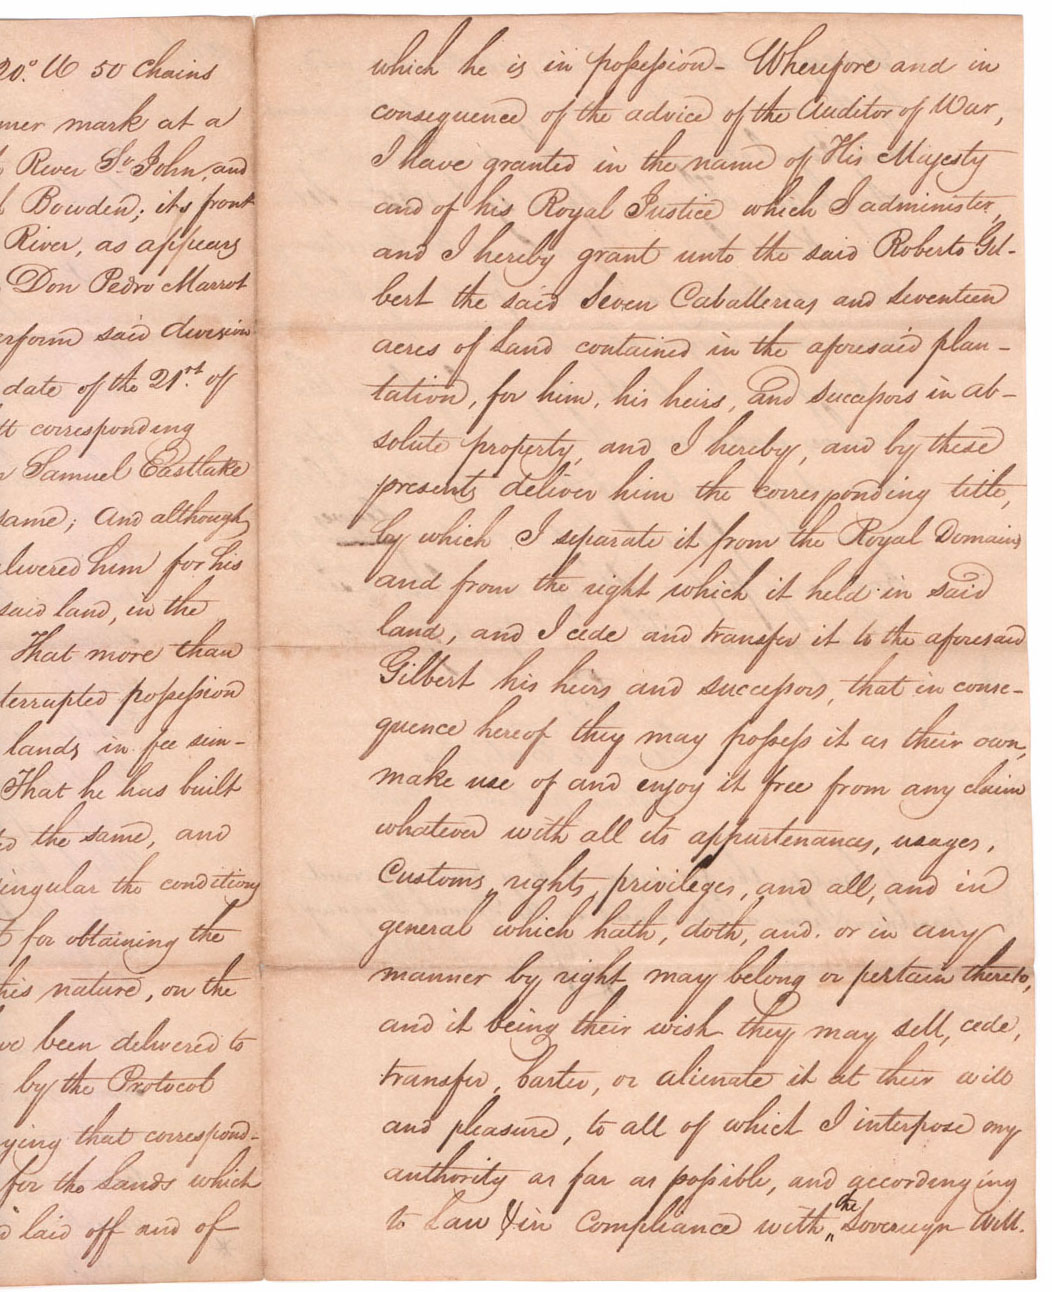 20° W 50 Chains
mer mark at a
River St. John, and
Bowden; its front
River, as appears
Don Pedro Marrot
erform said division
date of the 21st. of
tt corresponding
Samuel Eastlake
same; and although
livered him for his
said land, in the
That more than
terrupted possession
lands in fee sim-
That he has built
ed the same, and
singular the conditions
for obtaining the
his nature, on the
ve been delivered to
by the Protocol
ying that correspond-
for the Lands which
laid off and of
which he is in possession - Wherefore and in
consequence of the advice of the Auditor of War,
I have granted in the name of His Majesty
and of his Royal Justice which I administer,
and I hereby grant unto the said Roberto Gil-
bert the said Seven Caballerias and Seventeen
acres of Land contained in the aforesaid plan-
tation, for him, his heirs, and successors in ab-
solute property, and I hereby, and by these
presents deliver him the corresponding title,
by which I separate it from the Royal Domains
and from the right which it held in said
land, and I cede and transfer it to the aforesaid
Gilbert his heirs and successors, that in conse-
quence hereof they may possess it as their own,
make use of and enjoy it free from any claim
whatever with all its appurtenances, usages,
Customs, rights, privileges, and all, and in
general which hath, doth, and. or in any
manner by right may belong or pertain thereto,
and it being their wish they may sell, cede,
transfer, barter, or alienate it at their will
and pleasure, to all of which I interpose my
authority as far as possible, and accordingly
to Law & in Compliance with the Sovereign Will.